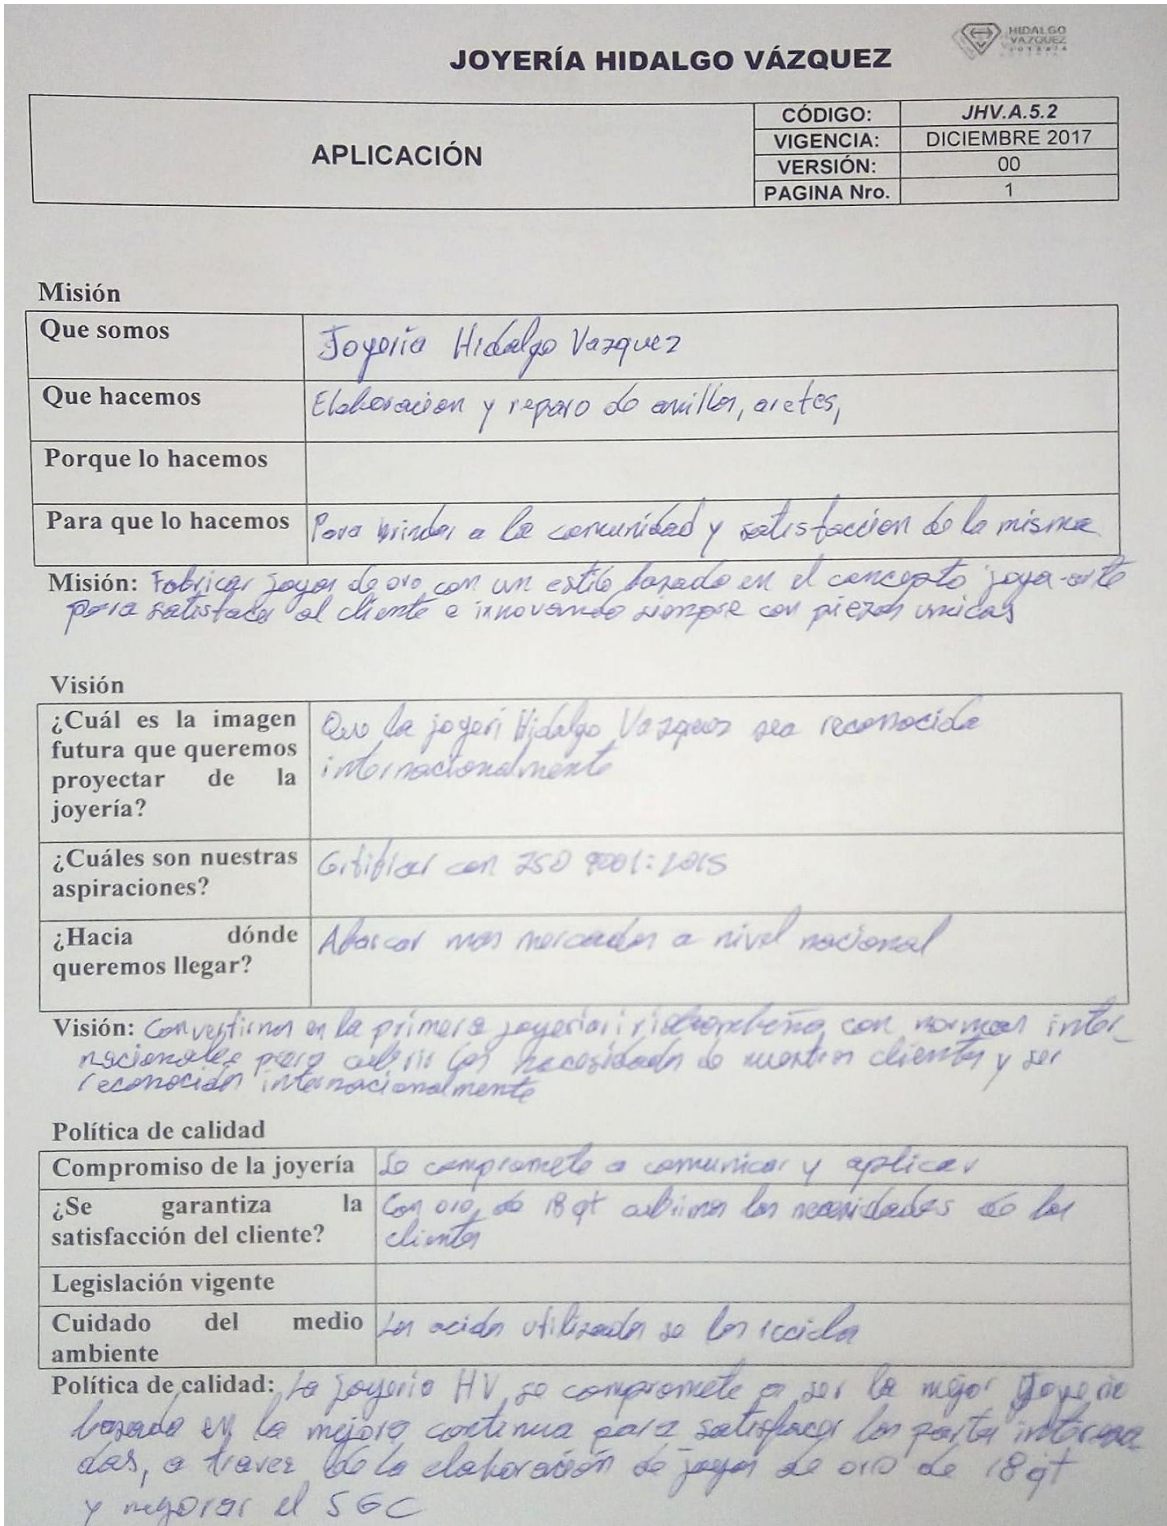 HIDALGO
VAZQUEZ
JOYERÍA
JOYERÍA HIDALGO VÁZQUEZ
APLICACIÓN
CÓDIGO: JHV.A.5.2
VIGENCIA: DICIEMBRE 2017
VERSIÓN: 00
PAGINA Nro. 1
Misión
Que somos Joyeria Hidalgo Vazquez
Que hacemos Elaboracion y reparo de anillos, aretes,
Porque lo hacemos
Para que lo hacemos Para brindar a la comunidad y satisfaccion de la misma
Misión: Fabricar joyas de oro con un estilo bazado en el concepto joya-arte
para satisfacer al cliente e innovando siempre con piezas unicas
Visión
¿Cuál es la imagen Que la joyeri Hidalgo Vazquez sea reconocida
futura que queremos internacionalmente
proyectar de la
joyería?
¿Cuáles son nuestras Certificar con ISO 9001:2015
aspiraciones?
¿Hacia dónde Abarcar mas mercados a nivel nacional
queremos llegar?
Visión: Convertirnos en la primera joyeria riobambeña con normas inter_
nacionales para cubrir las necesidades de nuestros clientes y ser
reconocidos internacionalmente
Política de calidad
Compromiso de la joyería Se compromete a comunicar y aplicar
¿Se garantiza la Con oro de 18 qt cubrimos las necesidades de los
satisfacción del cliente? clientes
Legislación vigente
Cuidado del medio Los acidos utilizados se los
ambiente
Política de calidad: La Joyeria HV, se compromete a ser la mejor Joyeria
bazada en la mejora continua para satisfacer las partes interesa
das, a travez de la elaboración de joyas de oro de 18 qt
y mejorar el SGC